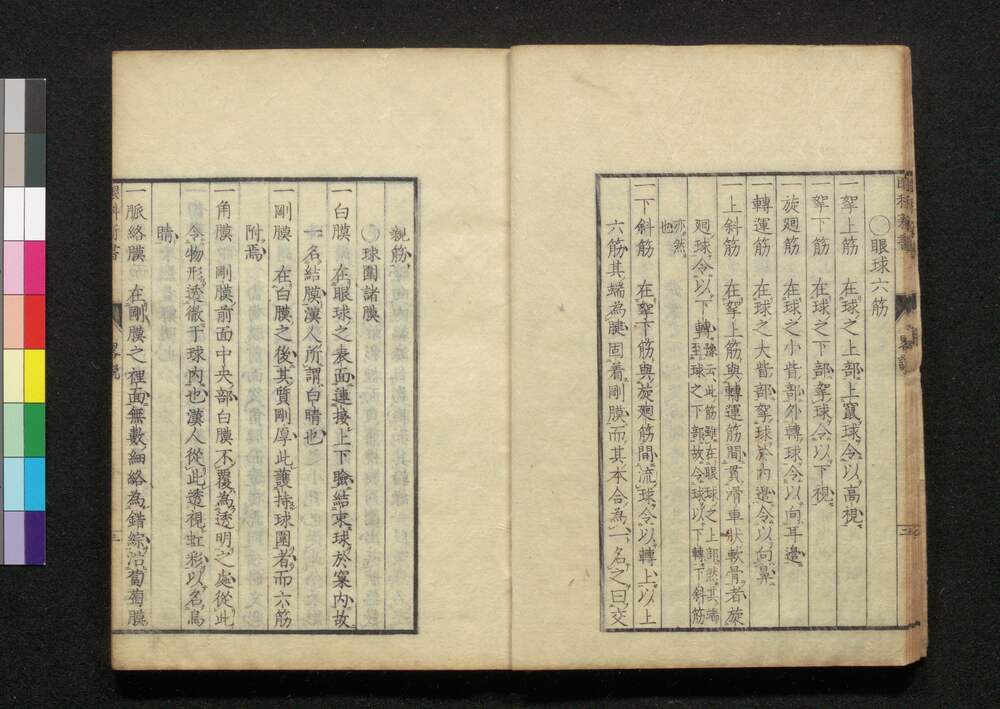 ○眼球六筋
一牽上筋 在球之上部上竄球令以高視
一牽下筋 在球之下部牽球令以下視
一旋廻筋 在球之小眥部外轉球令以向耳邊
一轉運筋 在球之大眥部牽球於內邊令以向鼻
一上斜筋 在牽上筋與轉運筋間貫滑車狀軟骨者旋
廻球令以下轉豫云此筋雖在眼球之上部然其端
至球之下部故令球以下轉下斜筋
亦然
也
一下斜筋 在牽下筋與旋廻筋間流球令以轉上以上
六筋其端為腱固着剛膜而其本合為一名之曰交
親筋
○球圍諸膜
一白膜 在眼球之表面蓮接上下瞼結束球於窠內故
一名結膜漢人所謂白睛也
一剛膜 在白膜之後其質剛厚此護持球圍者而六筋
附焉
一角膜 剛膜前面中央部白膜不覆為透明之處從此
令物形透徹于球內也漢人從此透視虹彩以名烏
睛
一脈絡膜 在剛膜之裡面無數細絡為錯綜沿葡萄膜